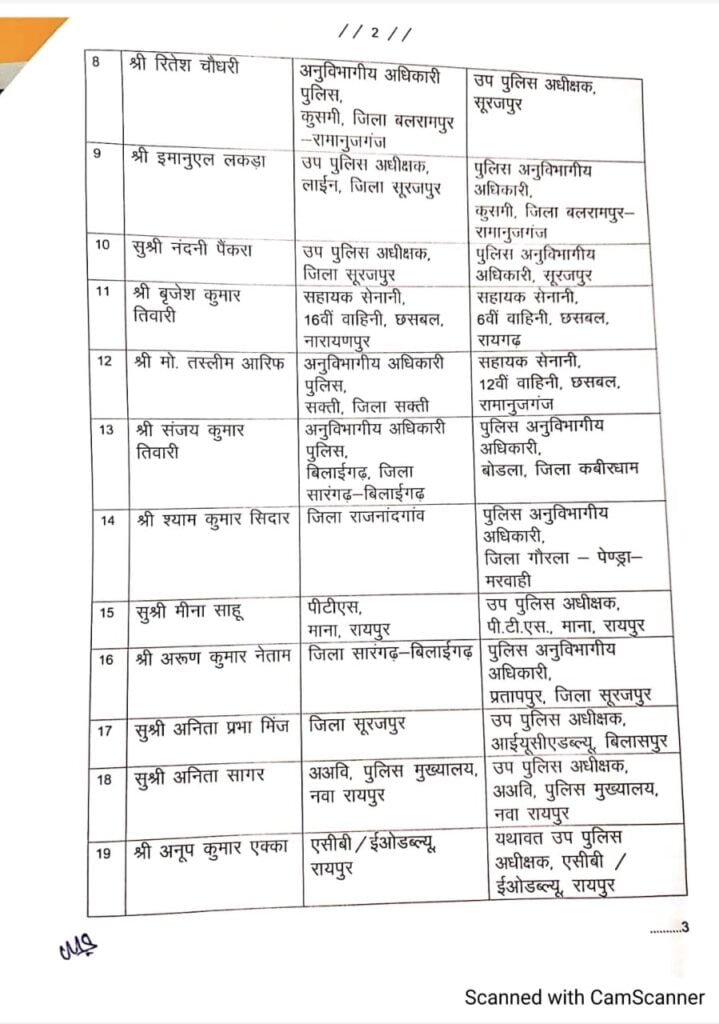 // 2 //
8 श्री रितेश चौधरी अनुविभागीय अधिकारी उप पुलिस अधीक्षक,
पुलिस, सूरजपुर
कुसमी, जिला बलरामपुर
–रामानुजगंज
9 श्री इमानुएल लकड़ा उप पुलिस अधीक्षक, पुलिस अनुविभागीय
लाईन, जिला सूरजपुर अधिकारी,
कुसमी, जिला बलरामपुर–
रामानुजगंज
10 सुश्री नंदनी पैंकरा उप पुलिस अधीक्षक, पुलिस अनुविभागीय
जिला सूरजपुर अधिकारी, सूरजपुर
11 श्री बृजेश कुमार सहायक सेनानी, सहायक सेनानी,
तिवारी 16वीं वाहिनी, छसबल, 6वीं वाहिनी, छसबल,
नारायणपुर रायगढ़
12 श्री मो. तस्लीम आरिफ अनुविभागीय अधिकारी सहायक सेनानी,
पुलिस, 12वीं वाहिनी, छसबल,
सक्ती, जिला सक्ती रामानुजगंज
13 श्री संजय कुमार अनुविभागीय अधिकारी पुलिस अनुविभागीय
तिवारी पुलिस, अधिकारी,
बिलाईगढ़, जिला बोडला, जिला कबीरधाम
सारंगढ़–बिलाईगढ़
14 श्री श्याम कुमार सिदार जिला राजनांदगांव पुलिस अनुविभागीय
अधिकारी,
जिला गौरला – पेण्ड्रा–
मरवाही
15 सुश्री मीना साहू पीटीएस, उप पुलिस अधीक्षक,
माना, रायपुर पी.टी.एस., माना, रायपुर
16 श्री अरूण कुमार नेताम जिला सारंगढ़–बिलाईगढ़ पुलिस अनुविभागीय
अधिकारी,
प्रतापपुर, जिला सूरजपुर
17 सुश्री अनिता प्रभा मिंज जिला सूरजपुर उप पुलिस अधीक्षक,
आईयूसीएडब्ल्यू, बिलासपुर
18 सुश्री अनिता सागर अअवि, पुलिस मुख्यालय, उप पुलिस अधीक्षक,
नवा रायपुर अअवि, पुलिस मुख्यालय,
नवा रायपुर
19 श्री अनूप कुमार एक्का एसीबी / ईओडब्ल्यू, यथावत उप पुलिस
रायपुर अधीक्षक, एसीबी /
ईओडब्ल्यू, रायपुर
..........3
Scanned with CamScanner